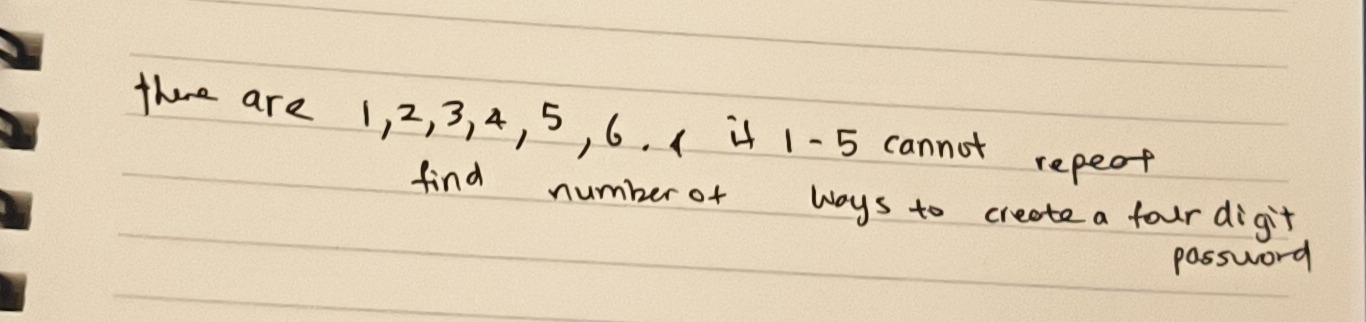 there are 1,2,3,4,5,6. if 1-5 cannot repeat
find number of ways to create a four digit
password